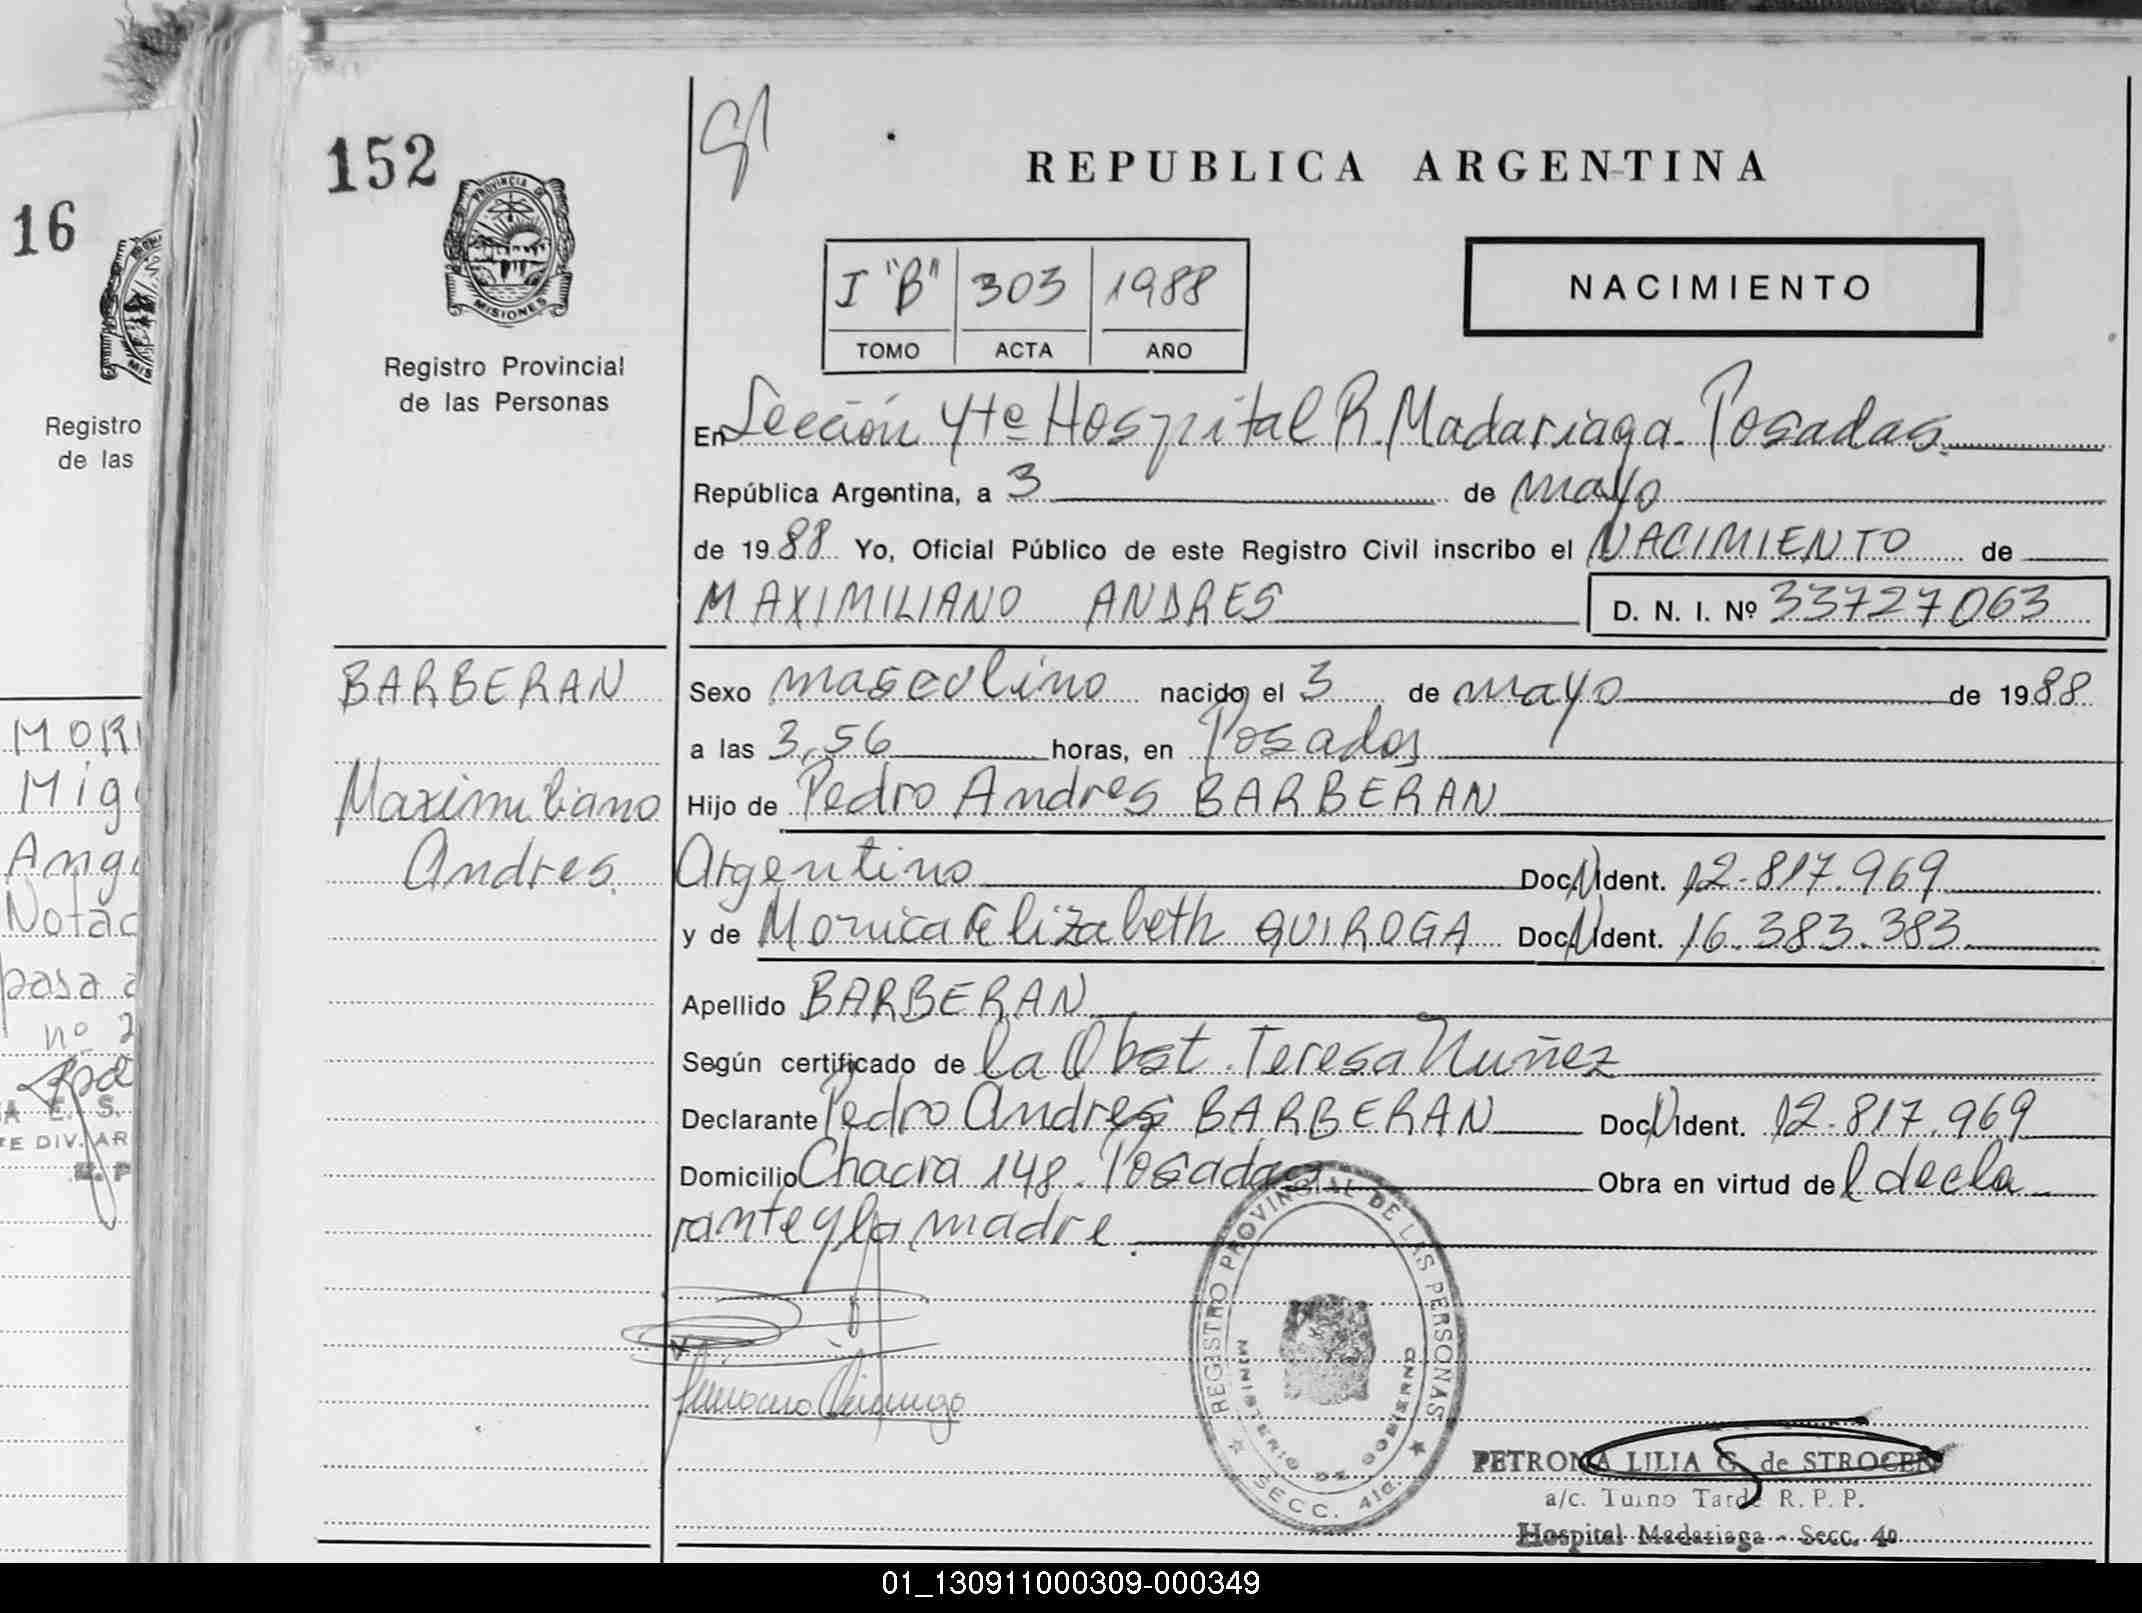 16
Registro
de las
MORI
Mig
Ang
Notac
pasa a
nº 2
A E. S.
TE DIV. AR
152
PROVINCIA DE
MISIONES
Registro Provincial
de las Personas
BARBERAN
Maximiliano
Andres.
REPUBLICA ARGENTINA
I "B" 303 1988
TOMO ACTA AÑO
NACIMIENTO
En Sección 4te Hospital R. Madariaga. Posadas.
República Argentina, a 3 de mayo
de 1988 Yo, Oficial Público de este Registro Civil inscribo el NACIMIENTO de
MAXIMILIANO ANDRES D. N. I. Nº 33727063
Sexo masculino nacido el 3 de mayo de 1988
a las 3,56 horas, en Posadas
Hijo de Pedro Andres BARBERAN
Argentino Doc. N Ident. 12.817.969
y de Monica Elizabeth QUIROGA Doc. N Ident. 16.383.383
Apellido BARBERAN
Según certificado de la Obst. Teresa Nuñez
Declarante Pedro Andres BARBERAN Doc. N Ident. 12.817.969
Domicilio Chacra 148. Posadas Obra en virtud del decla
rante y la madre.
REGISTRO PROVINCIAL DE LAS PERSONAS
MINISTERIO DE GOBIERNO
SECC. 4ta.
PETRONA LILIA G. de STROCEN
a/c. Turno Tarde R. P. P.
Hospital Madariaga - Secc. 4a
01_130911000309-000349